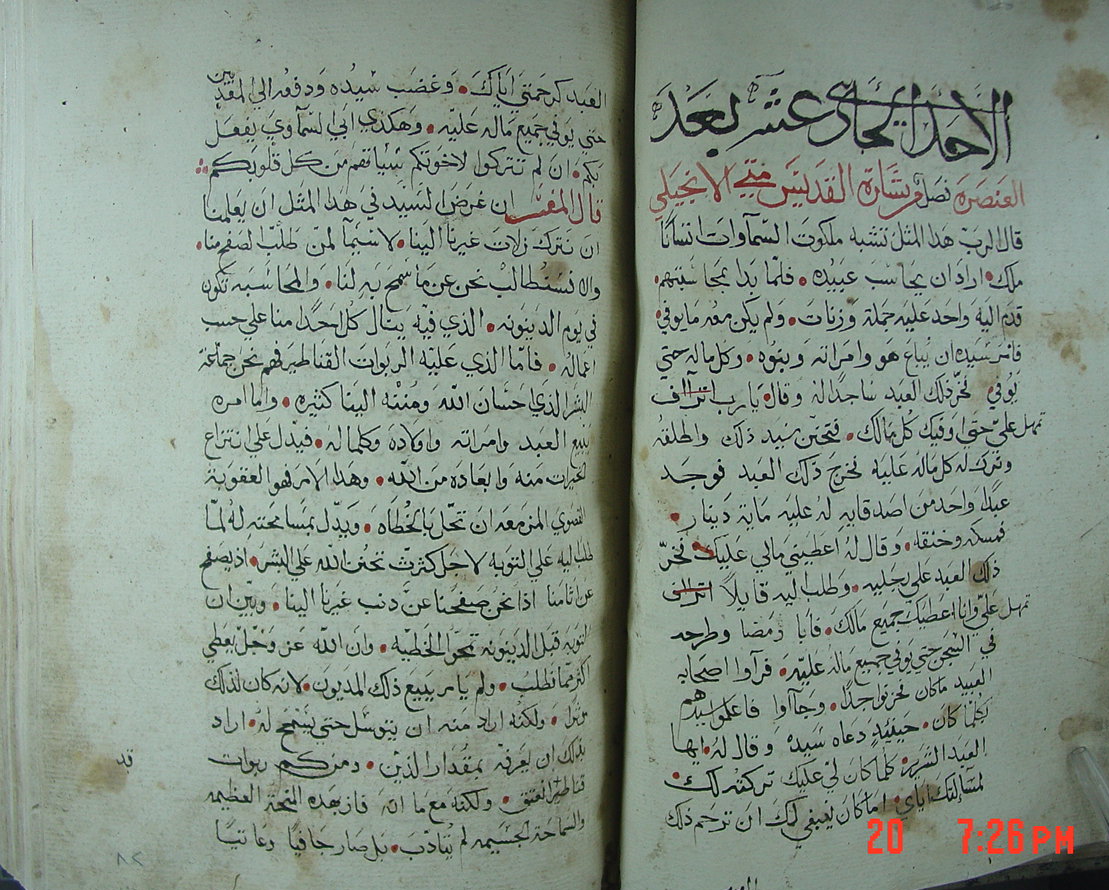 الاحد الحادي عشر بعد
العنصرة فصل من بشارة القديس متي الانجيلي
قال الرب هذا المثل تشبه ملكوت السماوات انسانًا
ملك اراد ان يحاسب عبيده فلما بدا بمحاسبتهم
قدم اليه واحد عليه جملة وزنات ولم يكن معه ما يوفي
فامر سيده ان يباع هو وامراته وبنوه وكل ماله حتي
يوفي فخر ذلك العبد ساجدًا له وقال يا رب
تمهل علي حتي اوفيك كل مالك فتحنن سيد ذلك واطلقه
وترك له كل ماله عليه فخرج ذلك العبد فوجد
عبدًا واحد من اصدقايه له عليه ماية دينار
فمسكه وخنقه وقال له اعطيني مالي عليك فخر
ذلك العبد علي رجليه وطلب اليه قايلًا
تمهل علي وانا اعطيك جميع مالك فابا ومضا وطرحه
في السجن حتي يوفي جميع ماله عليه فرآوا اصحابه
العبيد ماكان فحزنوا جدًا وجآوا فاعلموا سيدهم
بكلما كان حينئذٍ دعاه سيده وقال له ايها
العبد الشرير كلما كان لي عليك تركته لك
لمسآلتك اياي اما كان ينبغي لك ان ترحم ذلك
العبد كرحمتي اياك وغضب سيده ودفعه الي المعذبين
حتي يوفي جميع ماله عليه وهكذي ابي السمآوي يفعل
بكم ان لم تتركوا لاخوتكم سياتهم من كل قلوبكم
قال المفسر ان غرض السيد في هذا المثل ان يعلمنا
ان نترك زلات غيرنا الينا لاسيمآ لمن طلب الصفح منا
والا فسنطالب نحن عن ما سمح به لنا والمحاسبه تكون
في يوم الدينونه الذي فيه ينال كل احدًا منا علي حسب
اعماله فاما الذي عليه الربوات القناطير فهو نحن جماعة
البشر الذي احسان الله ومننه الينا كثيره واما امره
ببيع العبد وامراته واولاده وكلما له فيدل علي انتزاع
الخيرات منه وابعاده من الله وهذا الامر فهو العقوبة
القصوي المزمعه ان تحل بالخطاه ويدل بمسامحته له لما
طلب اليه علي التوبه لاجل كثرت تحنن الله علي البشر اذ يصفح
عن اثامنا اذا نحن صفحنا عن دنب غيرنا الينا وبين ان
التوبه قبل الدينونه تمحوا الخطيه وان الله عز وجل يعطي
اكثر مما نطلب ولم يامر ببيع ذلك المديون لانه كان لذلك
ولكنه اراد منه ان يتوسل حتي يسمح له اراد
بذلك ان يعرفه بمقدار الدين ومن كم ربوات
قناطير اعتق ولكنه مع ما انه فاز بهذه المنحة العظيمه
والسماحة الجسيمه لم يتادب بل صار جافيًا وعاتيًا
قد
٨٢
20 7:26 PM